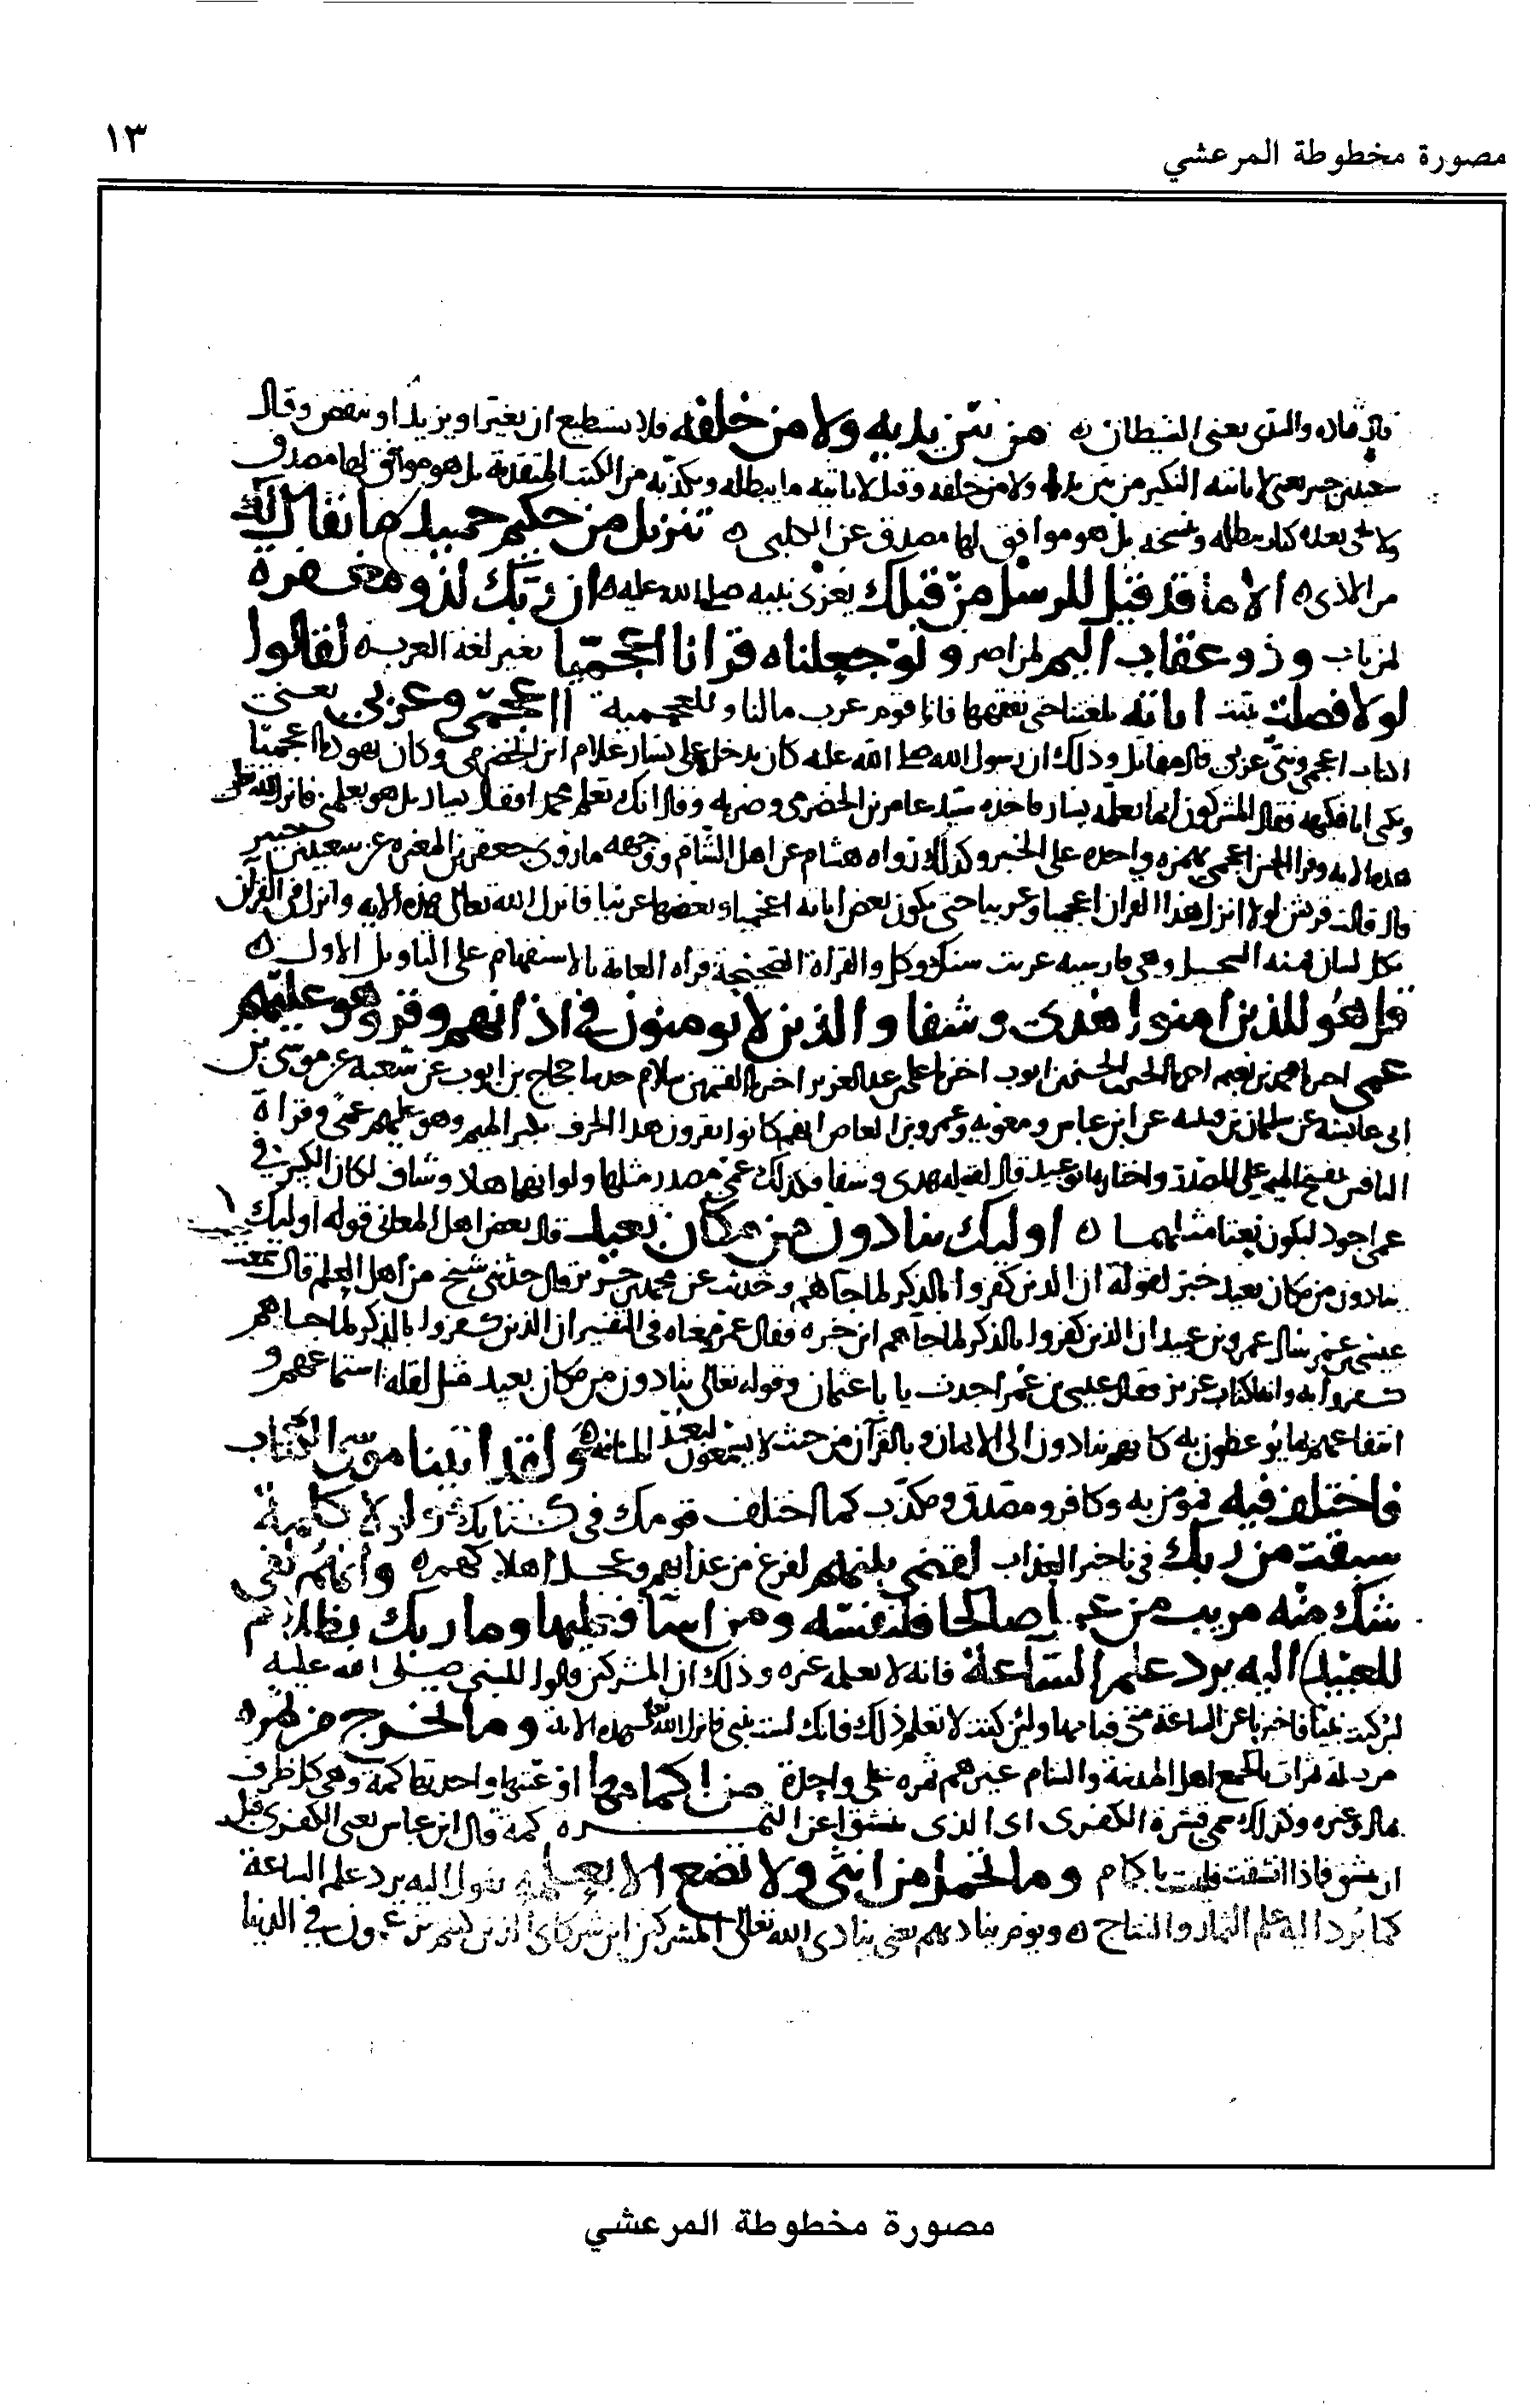 مصورة مخطوطة المرعشي
١٣
قال قتادة والسدى يعنى الشيطان ه من بين يديه ولا من خلفه فلا يستطيع ان يغير او يزيد او ينقص وقال
سعيد بن جبير يعنى لا ياتيه النكير من بين يديه ولا من خلفه وقيل لا ياتيه ما يبطله ويكذبه من الكتب المتقدمة بل هو موافق لها مصدق
ولا يجى بعده كتاب يبطله وينسخه بل هو موافق لها مصدق عن الكلبى ه تنزيل من حكيم حميد ما يقال لك
من الاذى ه الا ما قد قيل للرسل من قبلك يعزى نبيه صلى الله عليه ان ربك لذو مغفرة
لمن تاب وذو عقاب اليم لمن اصر ولو جعلناه قرانا اعجميا بغير لغة العرب ه لقالوا
لولا فصلت بينت اياته بلغتنا حتى نفقهها فانا قوم عرب ما لنا وللعجمية ااعجمى وعربى يعنى
اكتاب اعجمى ونبى عربى قال مقاتل وذلك ان رسول الله صلى الله عليه كان يدخل على يسار غلام ابن الحضرمى وكان يهوديا اعجميا
ويكنى ابا فكيهة فقال المشركون انما يعلمه يسار فاخذه سيده عامر بن الحضرمى وضربه وقال انك تعلم محمدا فقال يسار بل هو يعلمنى فانزل الله تعالى
هذه الاية وقرا الحسن اعجمى بهمزة واحدة على الخبر وكذلك رواه هشام عن اهل الشام ووجهه ما روى جعفر بن المغيرة عن سعيد بن جبير
قال قالت قريش لولا انزل هذا القران اعجميا وعربيا حتى يكون بعض اياته اعجميا وبعضها عربيا فانزل الله تعالى هذه الاية وانزل فى القرآن
بكل لسان فمنه السجيل وهى فارسية عربت سنك وكل والقراة الصحيحة قراة العامة بالاستفهام على التاويل الاول ه
قل هو للذين امنوا هدى وشفا والذين لا يومنون فى اذانهم وقر وهو عليهم
عمى اخبرنا محمد بن نعيم اخبرنا الحسين بن ايوب اخبرنا على بن عبد العزيز اخبرنا القسم بن سلام حدثنا حجاج بن ايوب عن شعبة عن موسى بن
ابى عايشة عن سليمان بن قتة عن ابن عباس ومعوية وعمرو بن العاص انهم كانوا يقرون هذا الحرف بكسر الميم وهو عليهم عم وقراة
الباقين بفتح الميم على المصدر واختارها ابو عبيد قال لقوله هدى وشفا فكذلك عمى مصدر مثلها ولو انهما هاد وشاف لكان الكسر فى
عمى اجود ليكون نعتا مثلهما ه اوليك ينادون من مكان بعيد قال بعض اهل المعانى قوله اوليك
ينادون من مكان بعيد خبر لقوله ان الذين كفروا بالذكر لما جاهم وحدثت عن محمد بن جرير قال حدثنى شيخ من اهل العلم قال سمعت
عيسى بن عمر سال عمرو بن عبيد ان الذين كفروا بالذكر لما جاهم اين خبره فقال عمرو معناه فى التفسير ان الذين كفروا بالذكر لما جاهم
كفروا به وانه لكتاب عزيز فقال عيسى بن عمر اجدت يا با عثمان وقوله تعالى ينادون من مكان بعيد مثل لقلة استماعهم و
انتفاعهم بما يوعظون به كانهم ينادون الى الايمان وبالقرآن من حيث لا يسمعون لبعد المسافة ه ولقد اتينا موسى الكتاب
فاختلف فيه فمومن به وكافر ومصدق ومكذب كما اختلف قومك فى كتابك ه ولولا كلمة
سبقت من ربك فى تاخير العذاب لقضى بينهم لفرغ من عذابهم وعجل اهلاكهم ه وانهم لفى
شك منه مريب من عمل صالحا فلنفسه ومن اسا فعليها وما ربك بظلام
للعبيد اليه يرد علم الساعة فانه لا يعلمه غيره وذلك ان المشركين قالوا للنبى صلى الله عليه
لئن كنت نبيا فاخبرنا عن الساعة متى قيامها ولئن كنت لا تعلم ذلك فانك لست بنبى فانزل الله تعالى هذه الاية وما تخرج من ثمرة
من صلة ثمرات بالجمع اهل المدينة والشام غيرهم ثمرة على واحدة من اكمامها اوعيتها واحدتها كمة وهى كل ظرف
مال وغيره وكذلك سمى قشرة الكفرى اى الذى ينشق عن الثمرة كمة قال ابن عباس يعنى الكفرى قبل
ان ينشق فاذا انشقت فليست باكمام وما تحمل من انثى ولا تضع الا بعلمه يقول اليه يرد علم الساعة
كما يرد اليه علم الثمار والنتاج ه ويوم يناديهم يعنى ينادى الله تعالى المشركين اين شركاى الذين كنتم تزعمون فى الدنيا
مصورة مخطوطة المرعشي